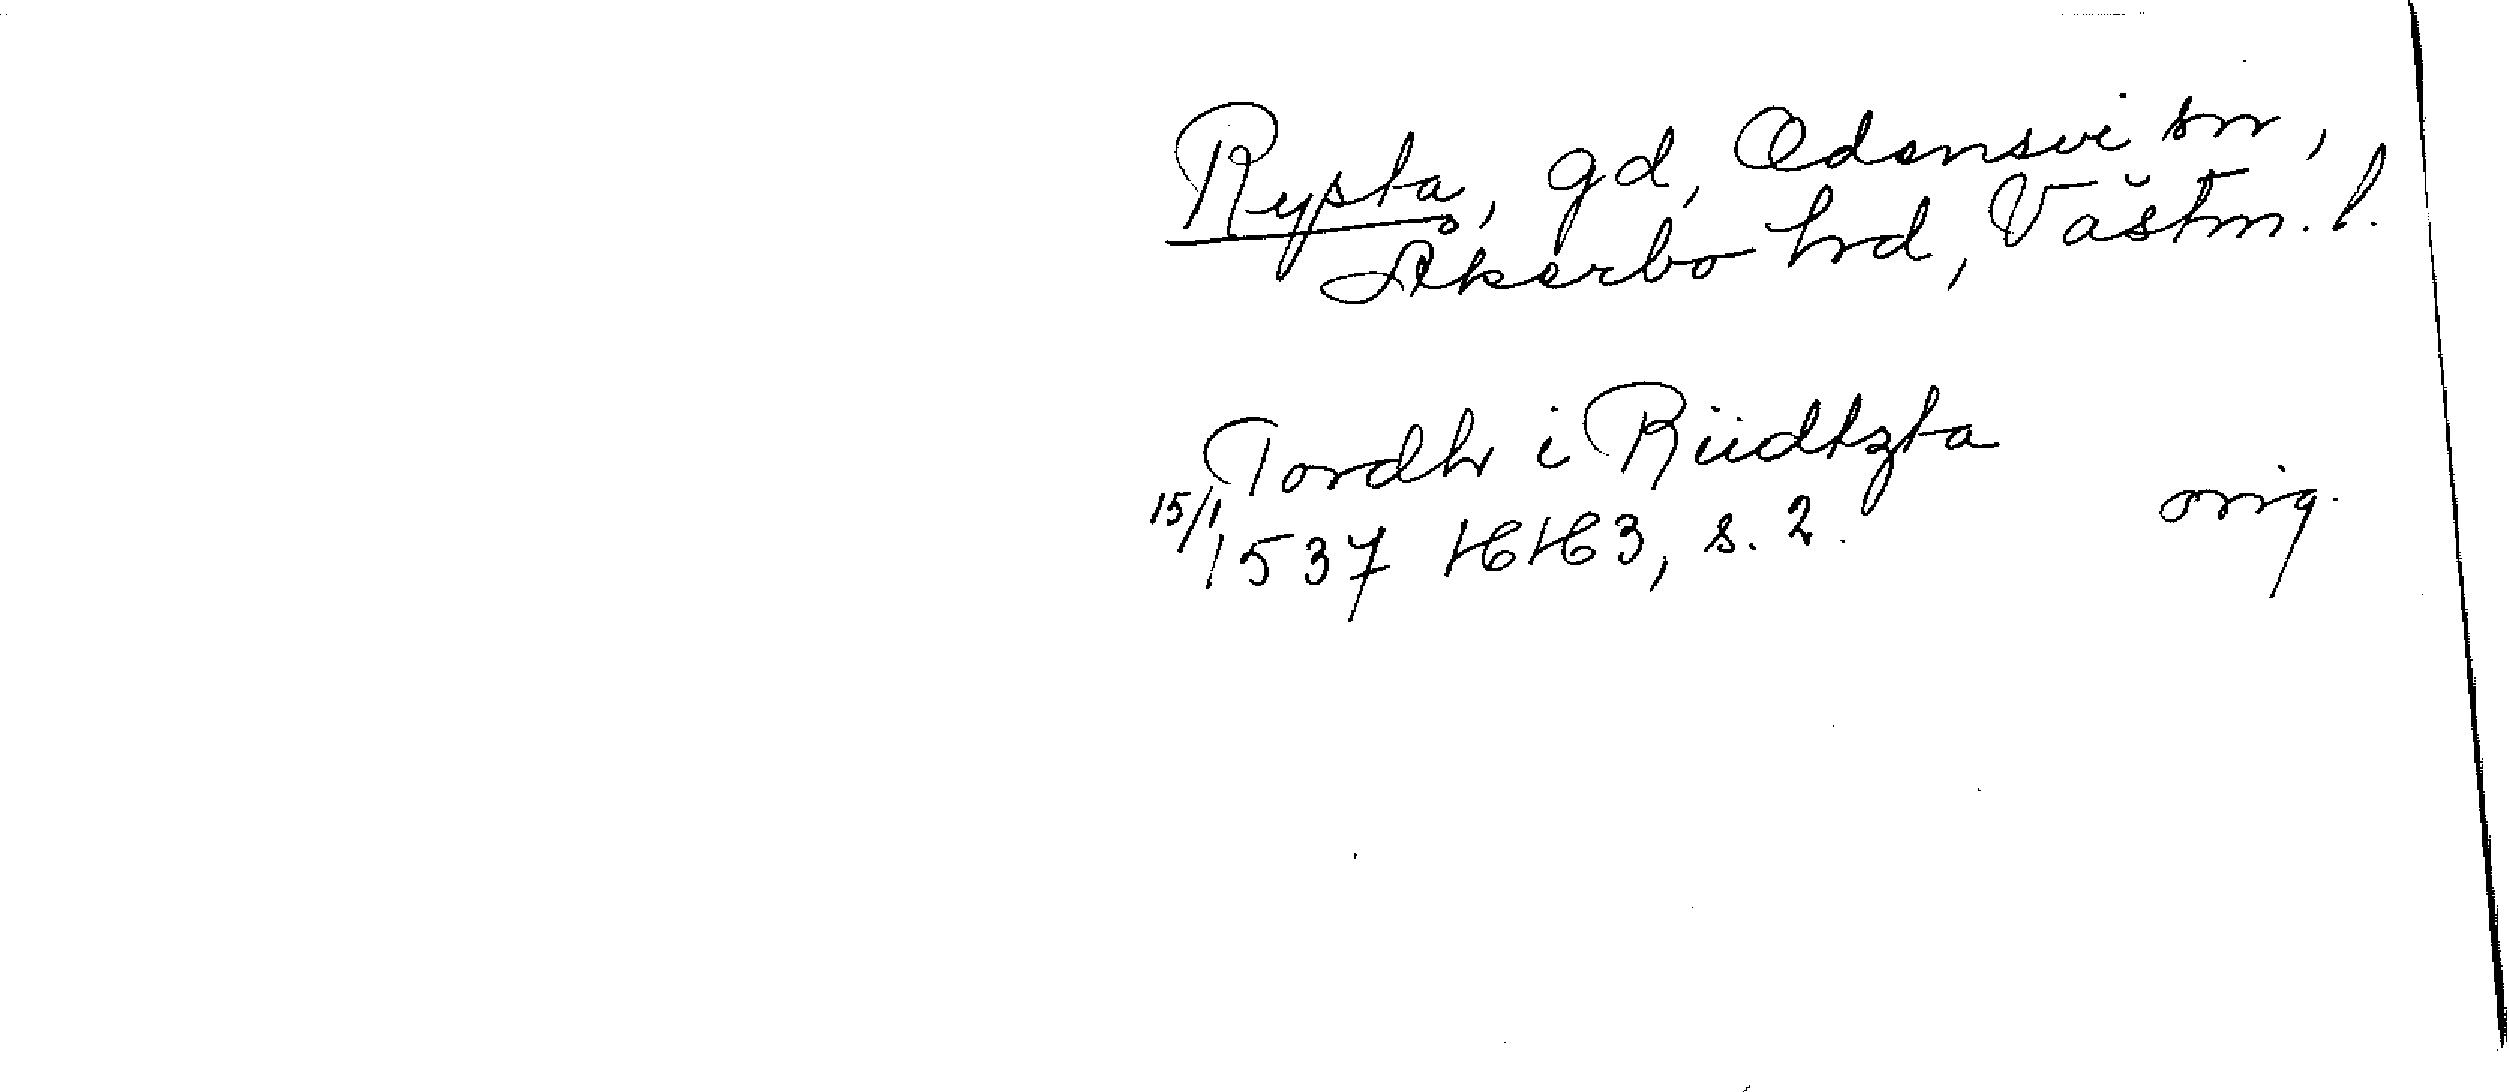 Rysta, gd, Odensvi sn,
Åkerbo hrd, Västm. l.
Tordh i Rüdtzta
15/1 1537 HH3, s. 2. orig.